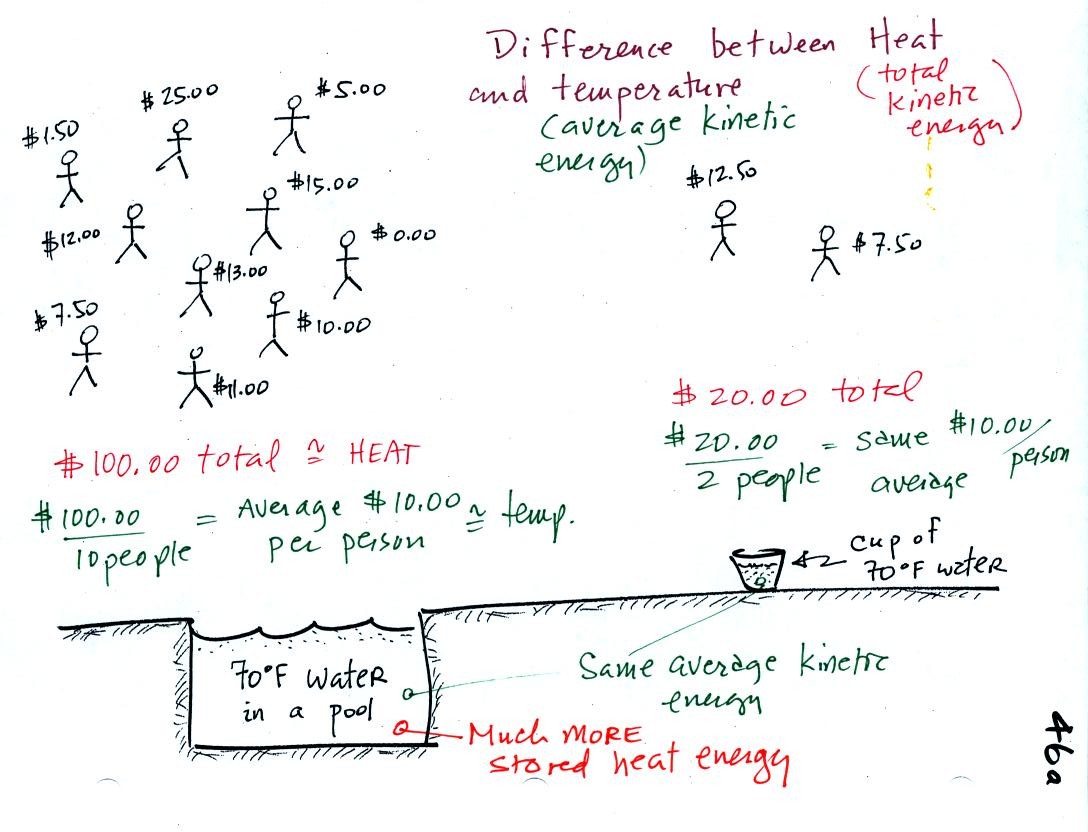 Difference between Heat
(total
kinetic
energy)
and temperature
(average kinetic
energy)
$25.00
$5.00
$1.50
$15.00
$12.00
$0.00
$13.00
$7.50
$10.00
$11.00
$12.50
$7.50
$100.00 total ≅ HEAT
$100.00
10 people
= Average $10.00
per person
≅ temp.
$20.00 total
$20.00
2 people
= same
average
$10.00/
person
cup of
70°F water
70°F water
in a pool
Same average kinetic
energy
Much MORE
stored heat energy
46a